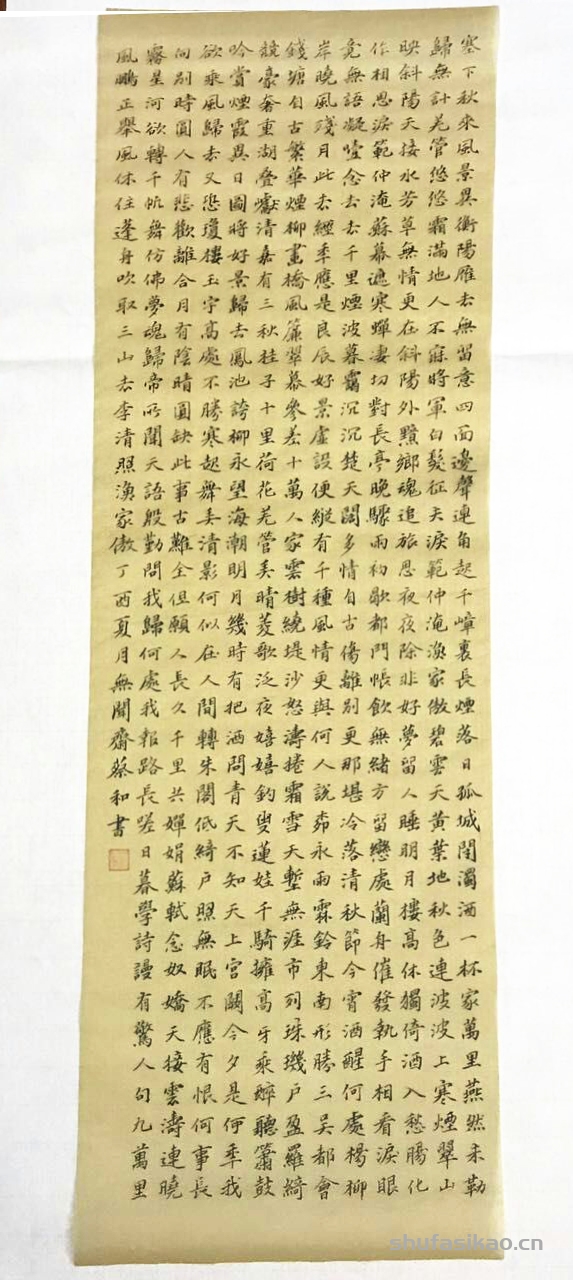 塞下秋來風景異衡陽雁去無留意四面邊聲連角起千嶂裏長煙落日孤城閉濁酒一杯家萬里燕然未勒
歸無計羌管悠悠霜滿地人不寐將軍白髮征夫淚範仲淹漁家傲碧雲天黃葉地秋色連波波上寒煙翠山
映斜陽天接水芳草無情更在斜陽外黯鄉魂追旅思夜夜除非好夢留人睡明月樓高休獨倚酒入愁腸化
作相思淚範仲淹蘇幕遮寒蟬凄切對長亭晚驟雨初歇都門帳飲無緒方留戀處蘭舟催發執手相看淚眼
竟無語凝噎念去去千里煙波暮靄沉沉楚天闊多情自古傷離別更那堪冷落清秋節今宵酒醒何處楊柳
岸曉風殘月此去經年應是良辰好景虛設便縱有千種風情更與何人說柳永雨霖鈴東南形勝三吳都會
錢塘自古繁華煙柳畫橋風簾翠幕參差十萬人家雲樹繞堤沙怒濤捲霜雪天塹無涯市列珠璣戶盈羅綺
競豪奢重湖疊巘清嘉有三秋桂子十里荷花羌管弄晴菱歌泛夜嬉嬉釣叟蓮娃千騎擁高牙乘醉聽簫鼓
吟賞煙霞異日圖將好景歸去鳳池誇柳永望海潮明月幾時有把酒問青天不知天上宮闕今夕是何年我
欲乘風歸去又恐瓊樓玉宇高處不勝寒起舞弄清影何似在人間轉朱閣低綺戶照無眠不應有恨何事長
向別時圓人有悲歡離合月有陰晴圓缺此事古難全但願人長久千里共嬋娟蘇軾念奴嬌天接雲濤連曉
霧星河欲轉千帆舞仿佛夢魂歸帝所聞天語殷勤問我歸何處我報路長嗟日暮學詩謾有驚人句九萬里
風鵬正舉風休住蓬舟吹取三山去李清照漁家傲丁酉夏月無聞齋蔡和書
shufasikao.cn